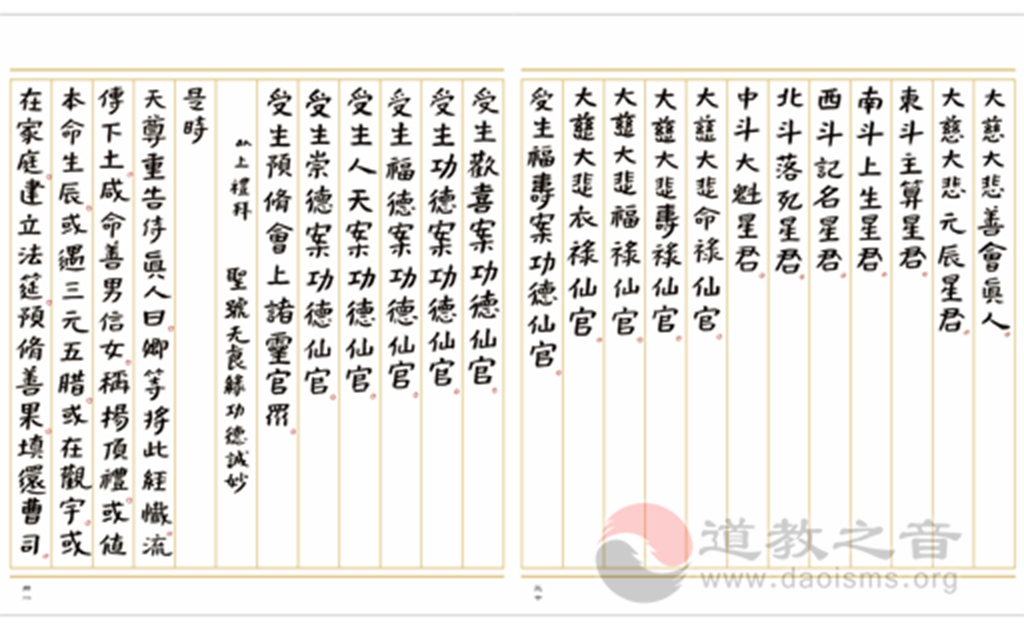 大慈大悲善會眞人。
大慈大悲元辰星君。
東斗主算星君。
南斗上生星君。
西斗記名星君。
北斗落死星君。
中斗大魁星君。
大慈大悲命祿仙官。
大慈大悲壽祿仙官。
大慈大悲福祿仙官。
大慈大悲衣祿仙官。
受生福壽案功德仙官。
受生歡喜案功德仙官。
受生功德案功德仙官。
受生福德案功德仙官。
受生人天案功德仙官。
受生崇德案功德仙官。
受生預脩會上諸靈官眾。
以上禮拜 聖號無食緣功德誠妙
是時
天尊重告侍眞人曰。卿等將此經懺。流
傳下土。咸命善男信女。稱揚頂禮。或值
本命生辰。或遇三元五腊。或在觀宇。或
在家庭。建立法筵。預脩善果。填還曹司。
道教之音
www.daoisms.org